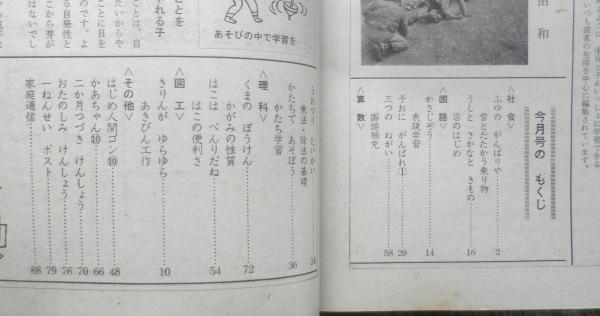 田 和
いつも読書の生活を中心に編集されています。
今月号の もくじ
〈社 会〉
ふゆの がんばりや……2
雪とたたかう乗り物
うしと さかなと きもの……16
店のはじめ
〈国 語〉
かさじぞう……14
表現学習
子おに がんばれ①……29
三つの ねがい……58
国語補充
〈算 数〉
乗法・除法の基礎
かたちで あそぼう……36
かたち学習
〈理 科〉
くまの ぼうけん……72
かがみの性質
はこは べんりだね……54
はこの便利さ
〈図 工〉
きりんが ゆらゆら……10
あきびん工作
〈その他〉
はじめ人間ゴン⑩……48
かあちゃん⑩……66
二か月つづき けんしょう……70
おたのしみ けんしょう……76
一ねんせい ポスト……79
家庭通信……88
あそびの中で学習を……
ことを
れる子